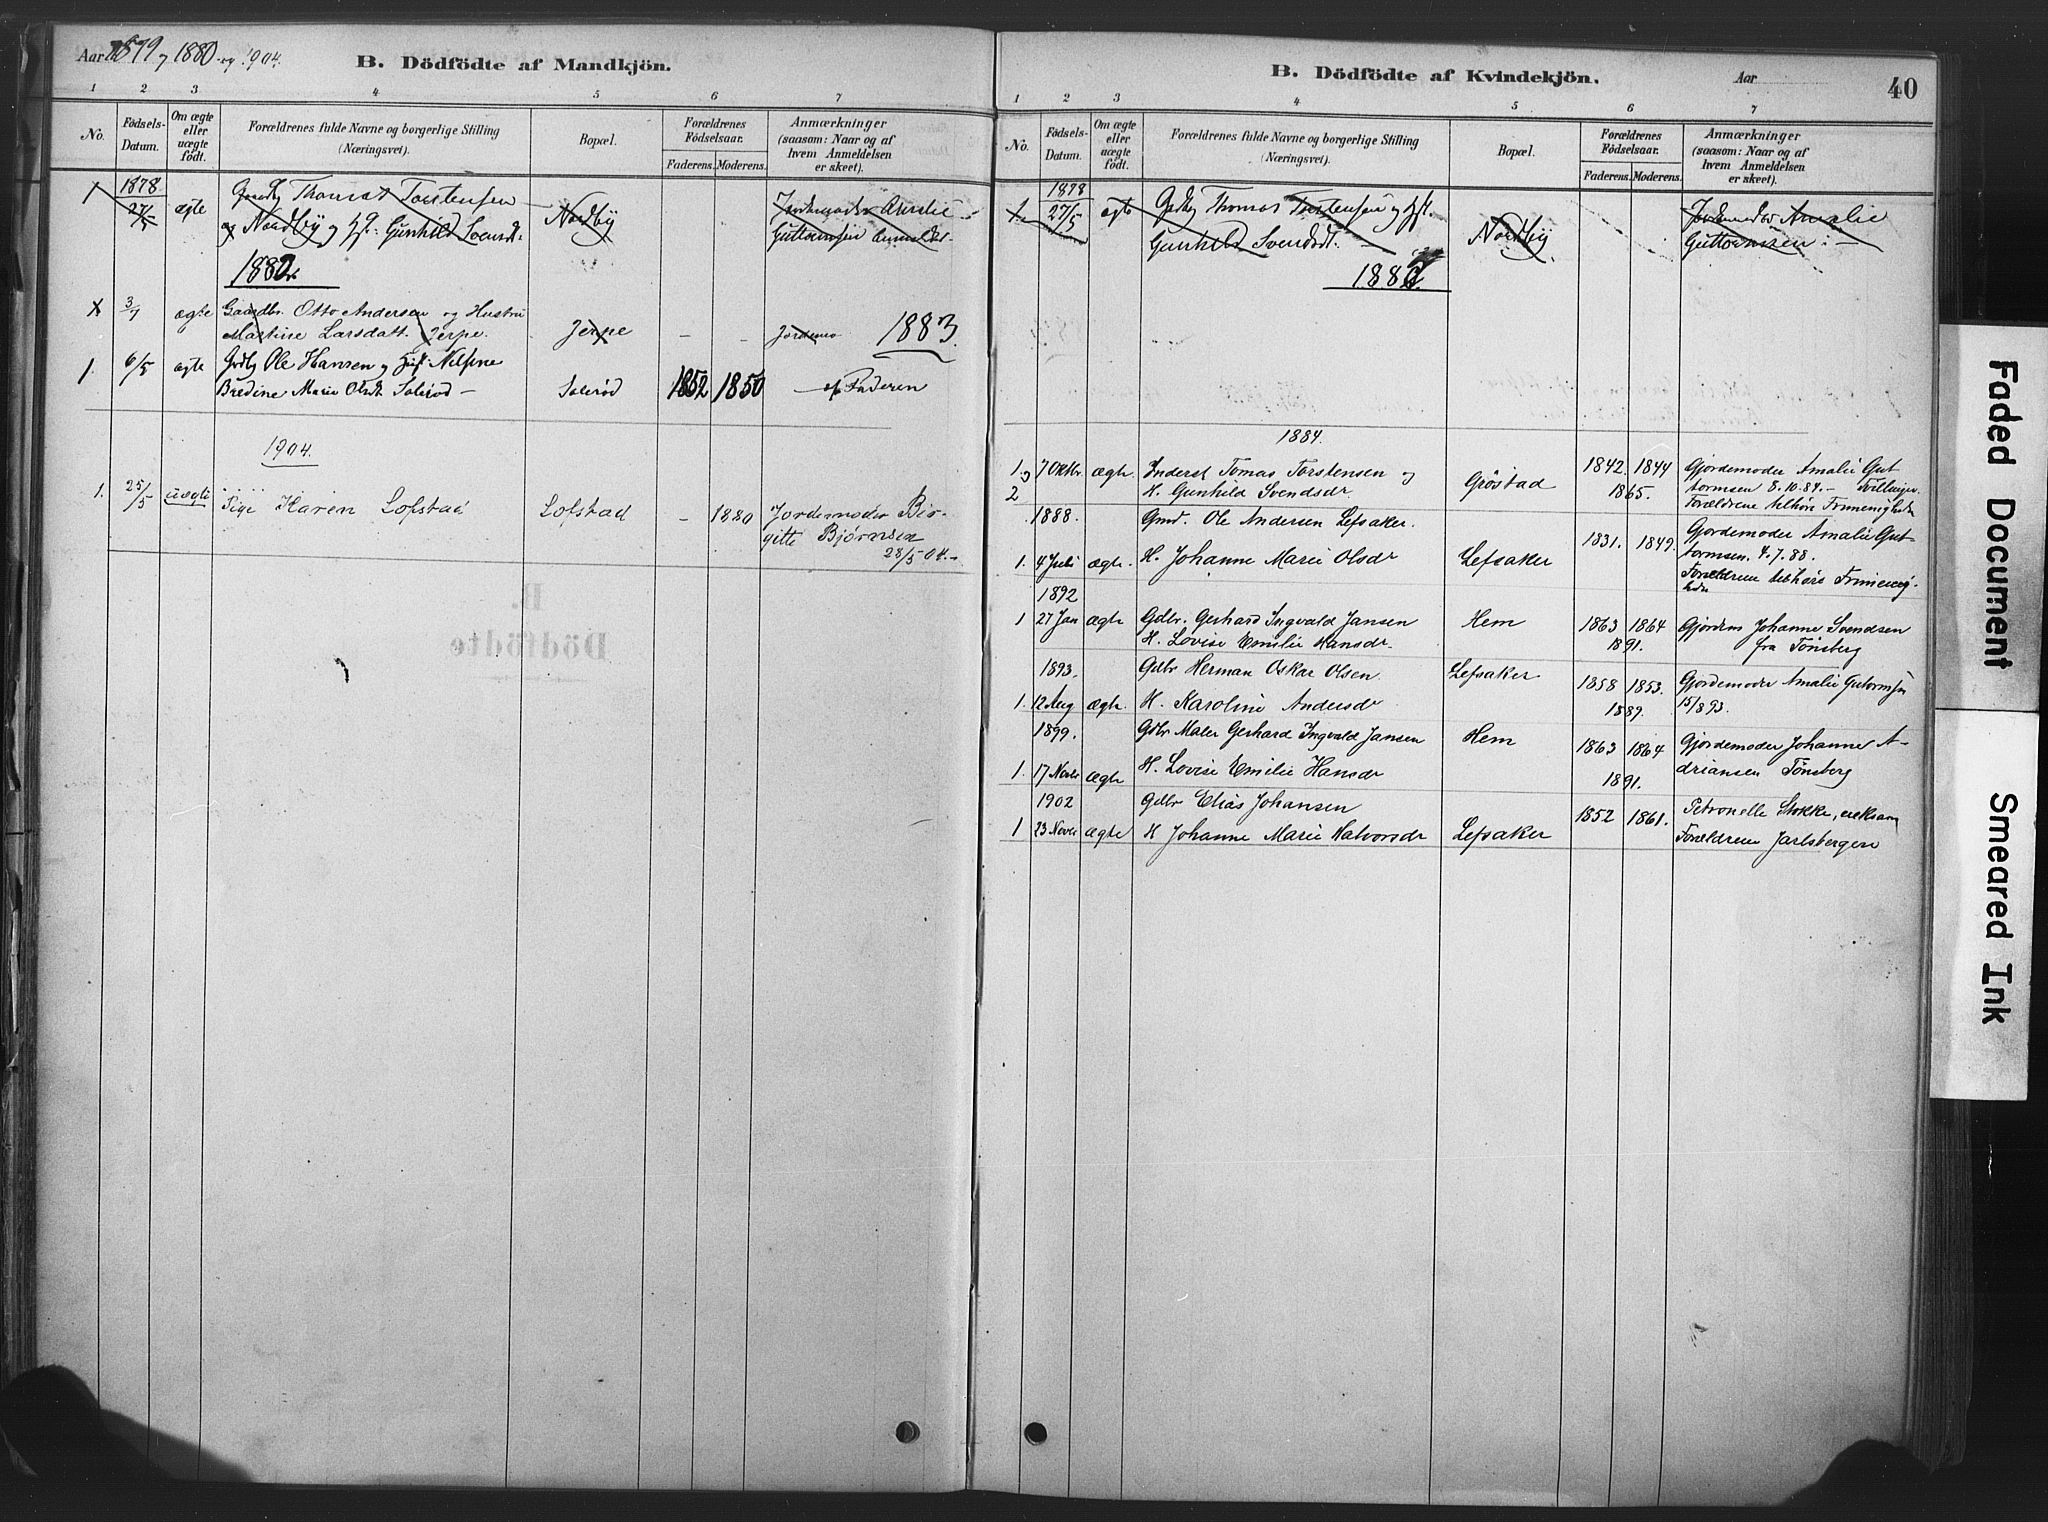 Aar 1879 og 1880 og 1904.
B. Dödfödte af Mandkjön.
1 2 3 4 5 6 7
No.
Födsels-
Datum.
Om ægte
eller
uægte
födt.
Forældrenes fulde Navne og borgerlige Stilling
(Næringsvei).
Bopæl.
Forældrenes
Födselsaar.
Faderens. Moderens.
Anmærkninger
(saasom: Naar og af
hvem Anmeldelsen
er skeet).
1878.
1 27/5 ægte Gaardbr Thomas Torstensen
Nordby og Hst. Gunhild Svendsdt.
Nordby
Jordemoder Amalie
Guttormsen anmeldt.
1882.
3/7 ægte Gaardbr. Otto Andersen og Hustru
Martine Larsdatt. Jerpe.
Jerpe - - Jordemo
1883.
1. 6/5 ægte Grdbr Ole Hansen og Hst. Nilsine
Bredine Marie Olsdt. Solerød -
Solerød 1852 1850 af Faderen
1904.
1. 25/5 uægte Pige Karen Lofstad
Lofstad - 1880 Jordemoder Bir-
gitte Bjørnsen
28/5 04.
B.
Dödfödte
B. Dödfödte af Kvindekjön.
Aar
40
1 2 3 4 5 6 7
No.
Födsels-
Datum.
Om ægte
eller
uægte
födt.
Forældrenes fulde Navne og borgerlige Stilling
(Næringsvei).
Bopæl.
Forældrenes
Födselsaar.
Faderens. Moderens.
Anmærkninger
(saasom: Naar og af
hvem Anmeldelsen
er skeet).
1878
1. 27/5 ægte Grdbr Thomas Torstensen og Hst.
Gunhild Svendsdt. -
Nordby
Jordemoder Amalie
Guttormsen: -
1882.
1884.
1. og 2 7 Oktbr. ægte Inderst Tomas Torstensen og
H. Gunhild Svendsdr.
Gröstad 1842. 1844
1865.
Gjordemoder Amalie Gut
tormsen 8.10.84. - Tvillinger.
Forældrene tilhøre Frimenigheden
1888. Gmd. Ole Andersen Lefsaker.
1. 4 Juli ægte. H. Johanne Marie Olsdr
Lefsaker 1831. 1849.
Gjordemoder Amalie Gut
tormsen. 4.7.88.
Forældrene tilhöre Frimenig-
heden
1892
1 27 Jan ægte Gdbr. Gerhard Ingvald Jansen
H. Lovise Emilie Hansdr.
Hem 1863 1864
1891.
Gjordem Johanne Svendsen
fra Tönsberg
1893. Gdbr Herman Oskar Olsen.
1. 12 Aug ægte. H. Karoline Andersdr
Lefsaker 1858 1853.
1889.
Gjordemoder Amalie Gutormsen
15/8 93.
1899. Gdbr Maler Gerhard Ingvald Jansen
1. 17 Novbr ægte H. Lovise Emilie Hansdr
Hem 1863 1864
1891.
Gjordemoder Johanne A-
driansen Tönsberg
1902 Gdbr Elias Johansen
1 23 Novbr ægte H Johanne Marie Halvorsdr
Lefsaker 1852 1861.
Petronelle Stokke, ereksam
Forældrene Jarlsbergere
Faded Document
Smeared Ink